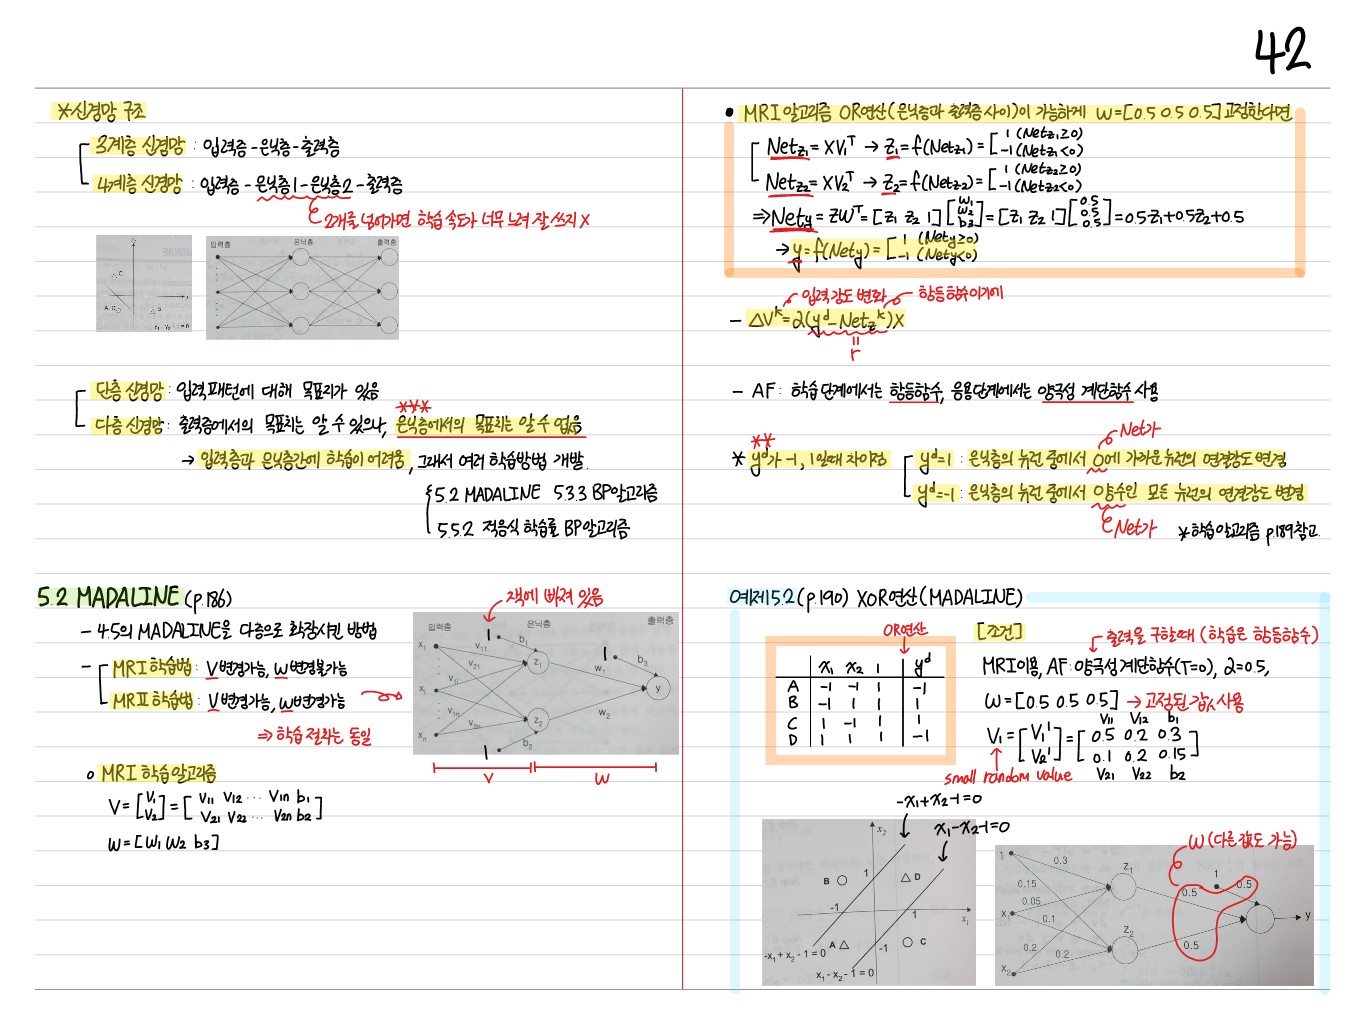 42
*신경망 구조
3계층 신경망 : 입력층-은닉층-출력층
4계층 신경망 : 입력층-은닉층1-은닉층2-출력층
2개를 넘어가면 학습 속도가 너무 느려 잘 쓰지 X
입력층 은닉층 출력층
단층 신경망 : 입력패턴에 대해 목표치가 있음
다층 신경망 : 출력층에서의 목표치는 알 수 있으나, 은닉층에서의 목표치는 알 수 없음
→ 입력층과 은닉층간에 학습이 어려움, 그래서 여러 학습방법 개발.
5.2 MADALINE 5.3.3 BP알고리즘
5.5.2 적응식 학습률 BP알고리즘
5.2 MADALINE (p.186)
- 4.5의 MADALINE을 다층으로 확장시킨 방법
- MRI 학습법 : V변경가능, W변경불가능
MRII 학습법 : V변경가능, W변경가능
⇒ 학습 절차는 동일
2책에 빠져 있음
입력층 은닉층 출력층
x₁ xᵢ xₙ
v₁₁ v₂₁ v₁ᵢ v₁ₙ v₂ₙ
1 b₁ z₁ 1 b₃ w₁ y
z₂ w₂ 1 b₂
V W
o MRI 학습알고리즘
V=[V₁ V₂]=[V₁₁ V₁₂ ··· V₁ₙ b₁
V₂₁ V₂₂ ··· V₂ₙ b₂]
W=[W₁ W₂ b₃]
• MRI 알고리즘 OR연산(은닉층과 출력층 사이)이 가능하게 W=[0.5 0.5 0.5]고정한다면
Net_z₁=XV₁ᵀ → z₁=f(Net_z₁)=[1 (Net_z₁≥0)
-1 (Net_z₁<0)
Net_z₂=XV₂ᵀ → z₂=f(Net_z₂)=[1 (Net_z₂≥0)
-1 (Net_z₂<0)
⇒Net_y=ZWᵀ=[z₁ z₂ 1][W₁ W₂ b₃]=[z₁ z₂ 1][0.5 0.5 0.5]=0.5z₁+0.5z₂+0.5
→ y=f(Net_y)=[1 (Net_y≥0)
-1 (Net_y<0)
입력 강도 변화 항등함수이기에
- ΔVᵏ=α(yᵈ-Net_zᵏ)X
= r
- AF : 학습 단계에서는 항등함수, 응용단계에서는 양극성 계단함수 사용
* yᵈ가 -1, 1일때 차이점
Net가
yᵈ=1 : 은닉층의 뉴런 중에서 0에 가까운 뉴런의 연결강도 변경
yᵈ=-1 : 은닉층의 뉴런 중에서 양수인 모든 뉴런의 연결강도 변경
Net가
*학습알고리즘 p.189참고.
예제5.2(p.190) XOR연산(MADALINE)
OR연산
x₁ x₂ 1 yᵈ
A -1 -1 1 -1
B -1 1 1 1
C 1 -1 1 1
D 1 1 1 -1
[조건]
출력을 구할때 (학습은 항등함수)
MRI이용, AF:양극성계단함수(T=0), α=0.5,
W=[0.5 0.5 0.5] → 고정된 값 사용
V₁₁ V₁₂ b₁
V₁=[V₁¹ V₂¹]=[0.5 0.2 0.3
0.1 0.2 0.15]
V₂₁ V₂₂ b₂
small random value
-x₁+x₂-1=0
x₁-x₂-1=0
x₂
B 1 D
-1 1 x₁
A -1 C
-x₁+x₂-1=0
x₁-x₂-1=0
W(다른 값도 가능)
1 0.3 z₁ 1 0.5
0.15 0.5
0.05
x₁ 0.1 y
z₂
0.2 0.2 0.5
x₂